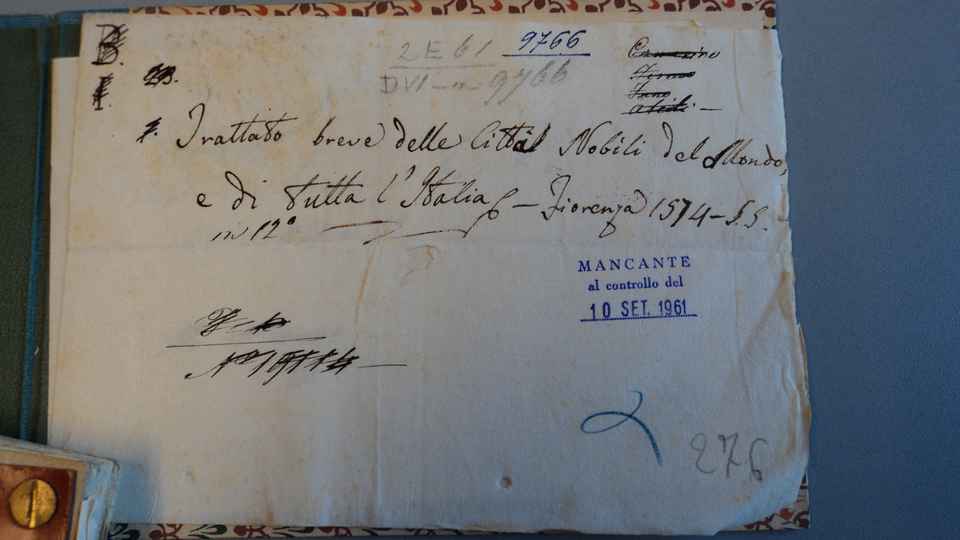 2 E 61 9766
DVI - 9766
Camerino
Fermo
Fano
Trattato breve delle Città Nobili del Mondo,
e di tutta l'Italia - Fiorenza 1574 - S.S.
in 12°
MANCANTE
al controllo del
10 SET. 1961
276